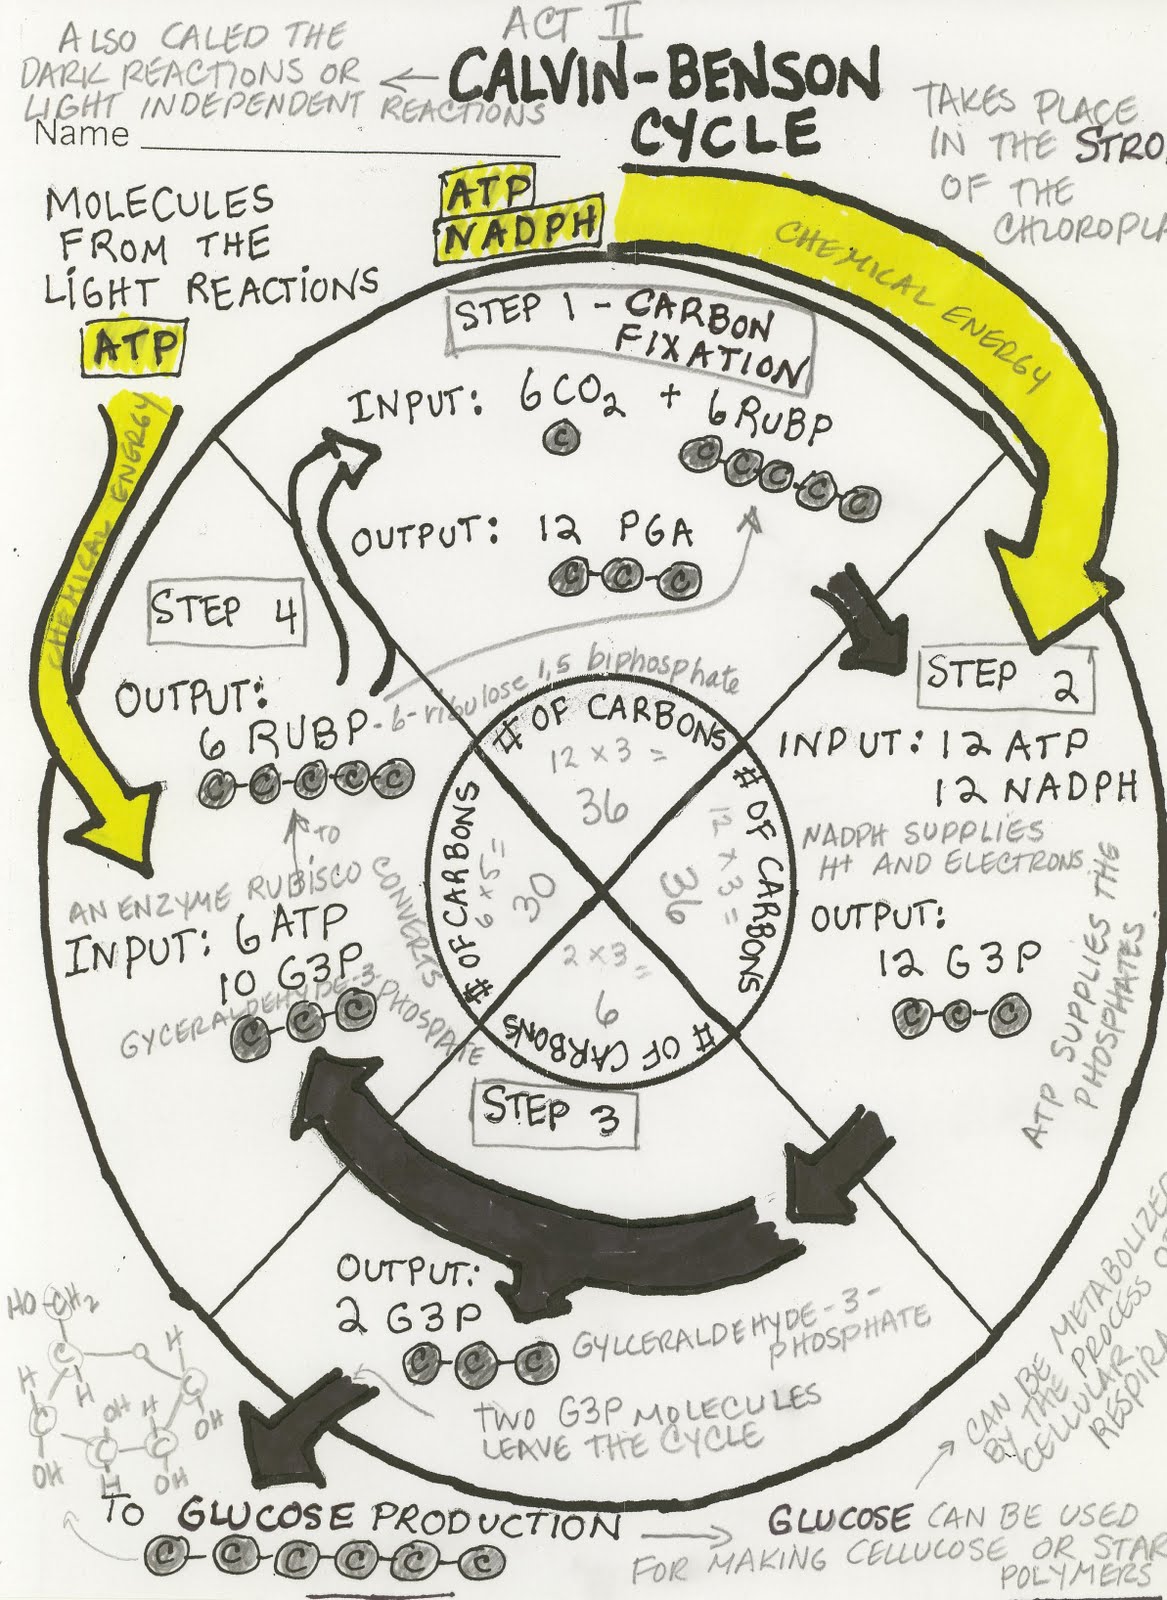 ACT II
ALSO CALED THE
DARK REACTIONS OR
LIGHT INDEPENDENT REACTIONS
CALVIN-BENSON
CYCLE
Name
TAKES PLACE
IN THE STRO
OF THE
CHLOROPLA
MOLECULES
FROM THE
LIGHT REACTIONS
ATP
CHEMICAL ENERGY
ATP
NADPH
CHEMICAL ENERGY
STEP 1 - CARBON
FIXATION
INPUT: 6CO2 + 6 RUBP
C
C C C C C
OUTPUT: 12 PGA
C-C-C
STEP 2
INPUT: 12 ATP
12 NADPH
NADPH SUPPLIES
H+ AND ELECTRONS
ATP SUPPLIES THE
PHOSPHATES.
OUTPUT:
12 G3P
C-C-C
STEP 3
OUTPUT:
2 G3P
C-C-C
GYLCERALDEHYDE-3-
PHOSPHATE
TWO G3P MOLECULES
LEAVE THE CYCLE
STEP 4
OUTPUT:
6 RUBP-6-ribulose 1,5 biphosphate
C-C-C-C-C
AN ENZYME RUBISCO CONVERTS
TO
INPUT: 6 ATP
10 G3P
GYCERALDEHYDE-3-PHOSPDATE
C-C-C
# OF CARBONS
12 x 3 =
36
# OF CARBONS
12 x 3 =
36
# OF CARBONS
2 x 3 =
6
# OF CARBONS
6 x 5 =
30
HO-CH2
C O H
H C H C
C OH H OH
OH C C
H OH
TO GLUCOSE PRODUCTION
C-C-C-C-C-C
GLUCOSE CAN BE USED
FOR MAKING CELLUCOSE OR STAR
POLYMERS
CAN BE METABOLIZED
BY THE PROCESS O
CELLULAR
RESPIRA